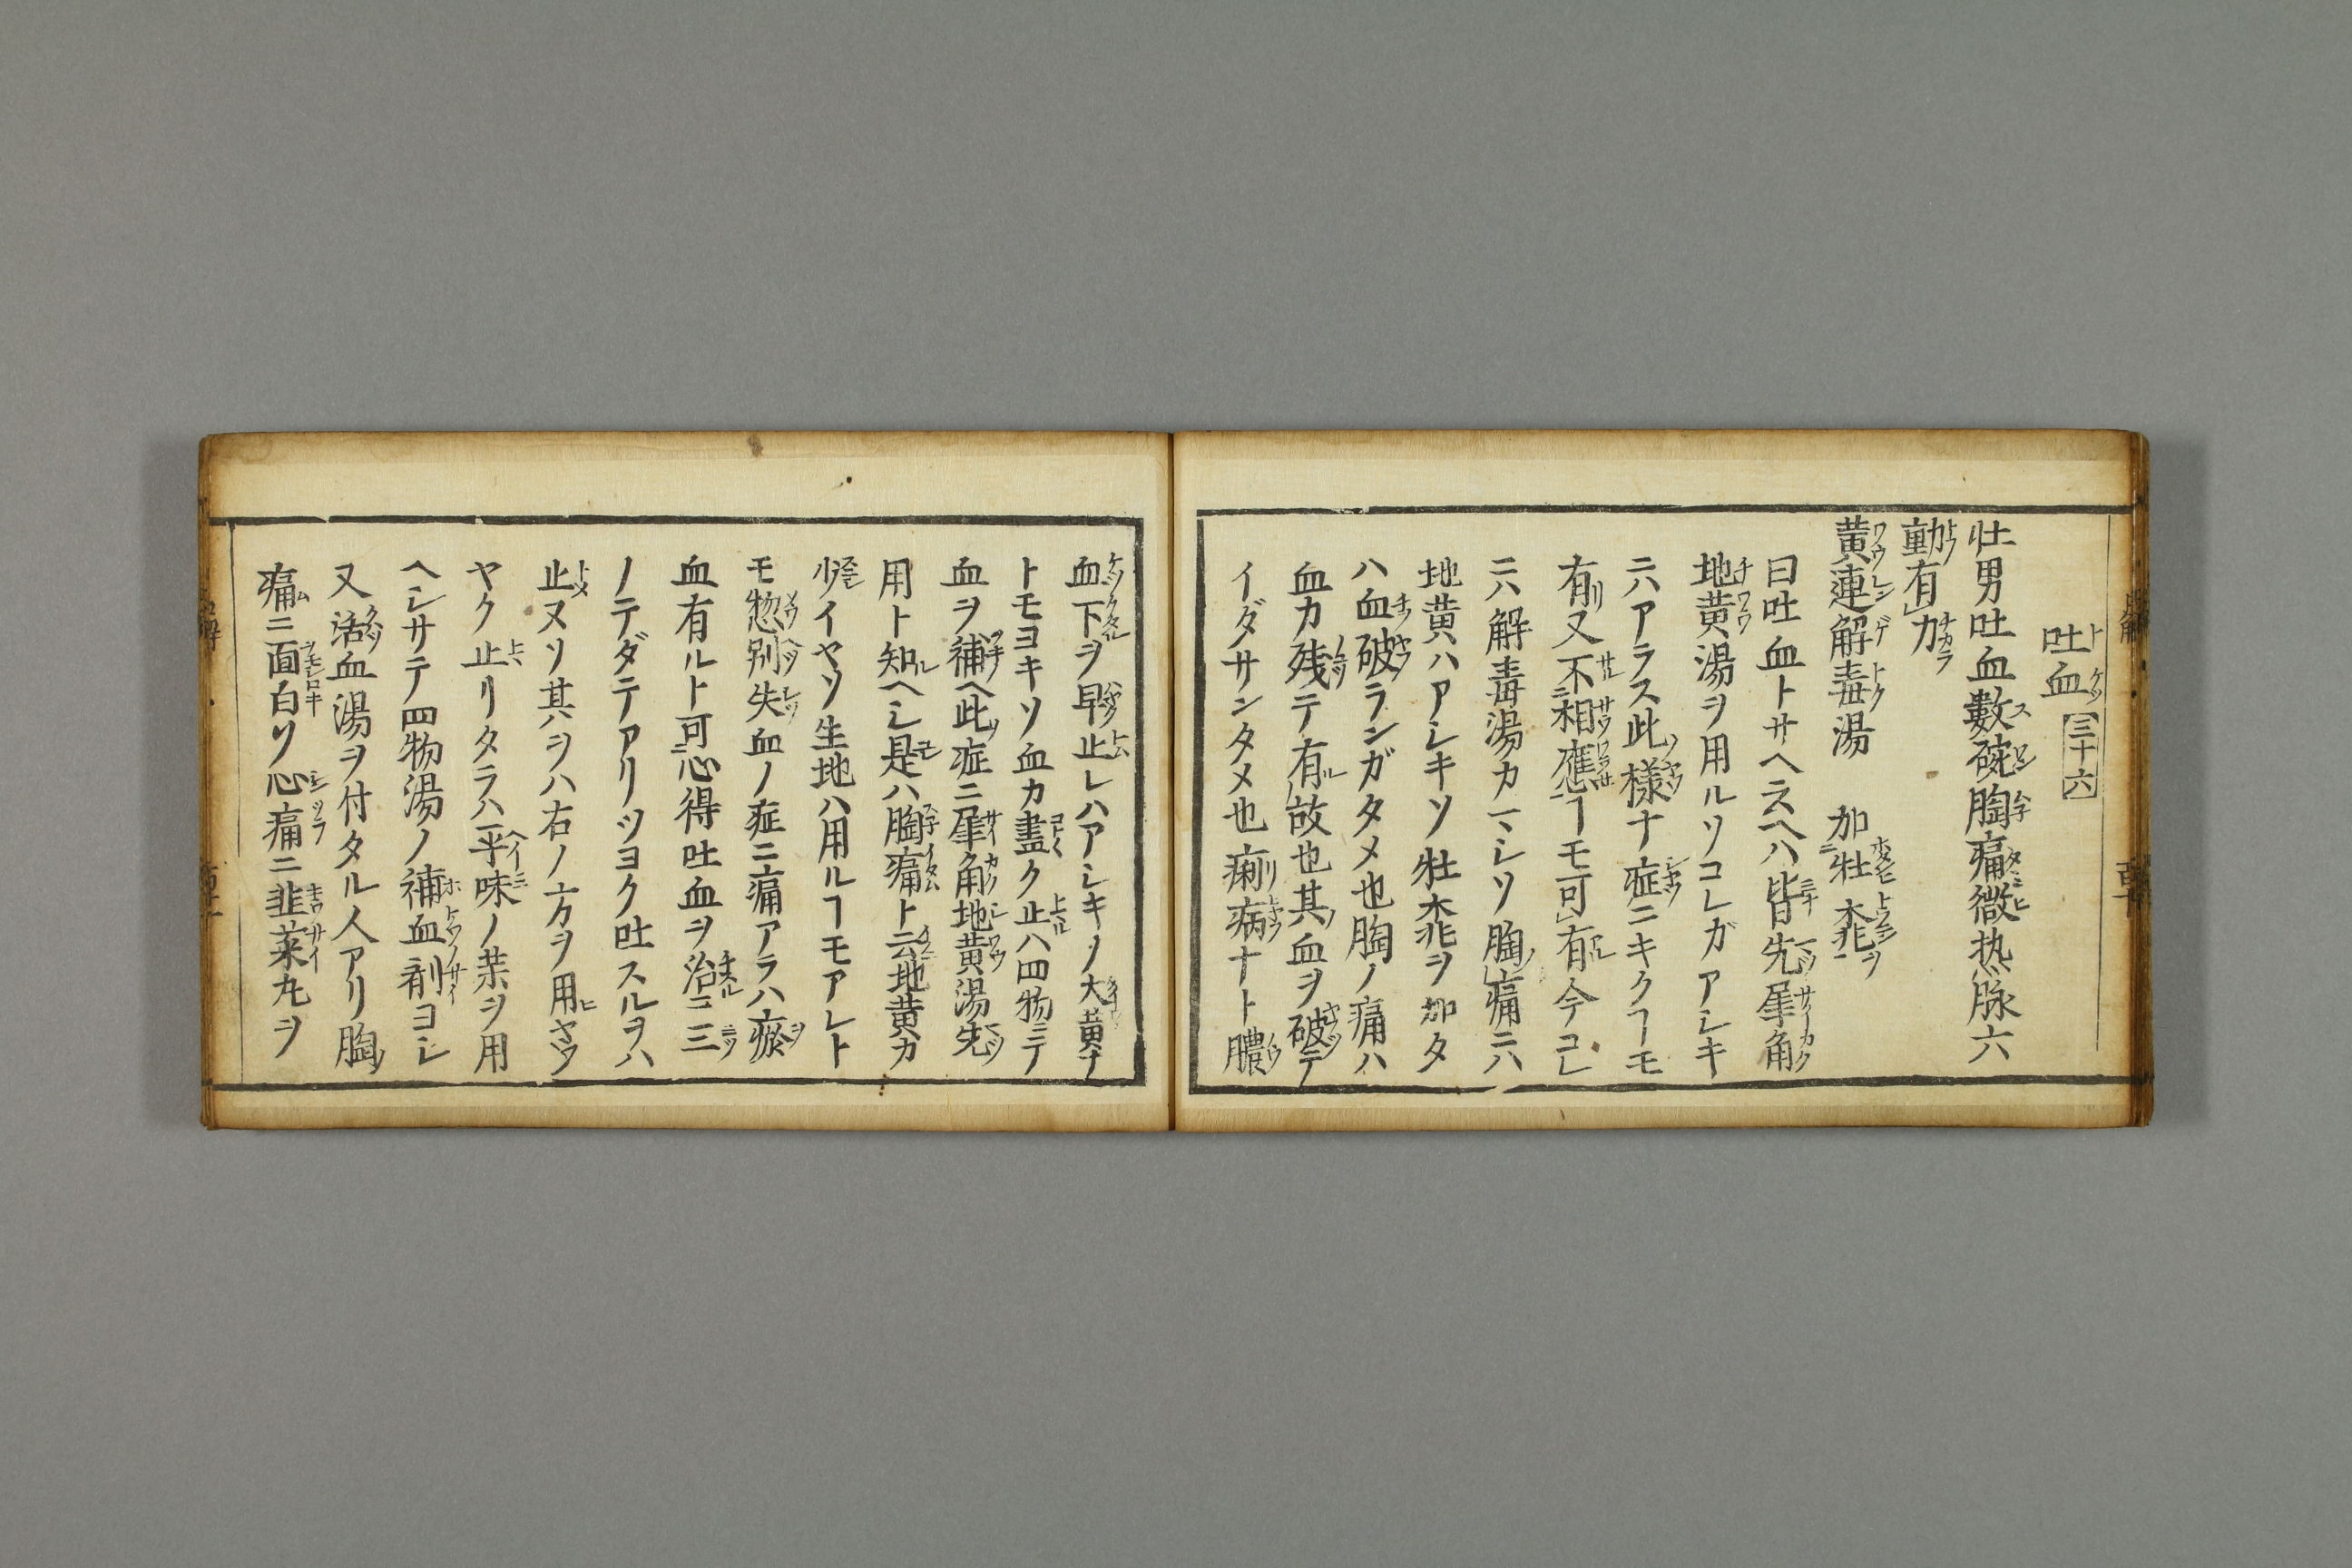 吐血 三十六
壮男吐血數碗胸痛微热脉六
動有力
黄連解毒湯 加牡丹桃
曰吐血トサヘ云ヘハ皆先犀角
地黄湯ヲ用ルソコレガアシキ
ニハアラス此様ナ症ニキクヿモ
有又不相應ヿモ可有今コレ
ニハ解毒湯カマシソ胸痛ニハ
地黄ハアシキソ牡桃ヲ加タ
ハ血破ランガタメ也胸ノ痛ハ
血カ残テ有故也其血ヲ破テ
イダサンタメ也痢病ナト膿
血下ヲ早止レハアシキソ大黄ナ
トモヨキソ血カ盡ク止ハ四物ニテ
血ヲ補ヘ此症ニ犀角地黄湯先
用ト知ヘシ是ハ胸痛ト云地黄カ
少イヤソ生地ハ用ルヿモアレト
モ惣別失血ノ症ニ痛アラハ瘀
血有ルト可心得吐血ヲ治ニ三
ノテダテアリツヨク吐スルヲハ
止又ソ其ヲハ右ノ方ヲ用サツ
ヤク止リタラハ平味ノ薬ヲ用
ヘシサテ四物湯ノ補血劑ヨシ
又活血湯ヲ付タル人アリ胸
痛ニ面白ソ心痛ニ韭菜丸ヲ